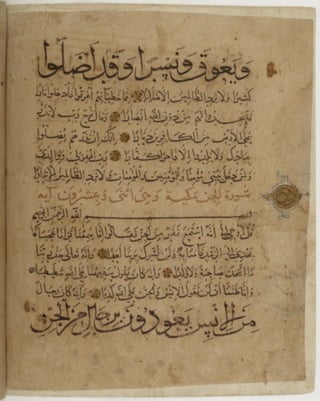 ويعوق ونسرا وقد اضلوا
كثيرا ولا تزد الظالمين الا ضلالا مما خطياتهم اغرقوا فادخلوا نارا
فلم يجدوا لهم من دون الله انصارا وقال نوح رب لا تذر
على الارض من الكافرين ديارا انك ان تذرهم يضلوا
عبادك ولا يلدوا الا فاجرا كفارا رب اغفر لي ولوالدي
ولمن دخل بيتي مؤمنا وللمؤمنين والمؤمنات ولا تزد الظالمين الا تبارا
سورة الجن مكية وهي اثنتي وعشرون آية
بسم الله الرحمن الرحيم
قل اوحي الي انه استمع نفر من الجن فقالوا انا سمعنا قرانا عجبا
يهدي الى الرشد فامنا به ولن نشرك بربنا احدا وانه تعالى جد ربنا
ما اتخذ صاحبة ولا ولدا وانه كان يقول سفيهنا على الله شططا
وانا ظننا ان لن تقول الانس والجن على الله كذبا وانه كان رجال
من الانس يعوذون برجال من الجن